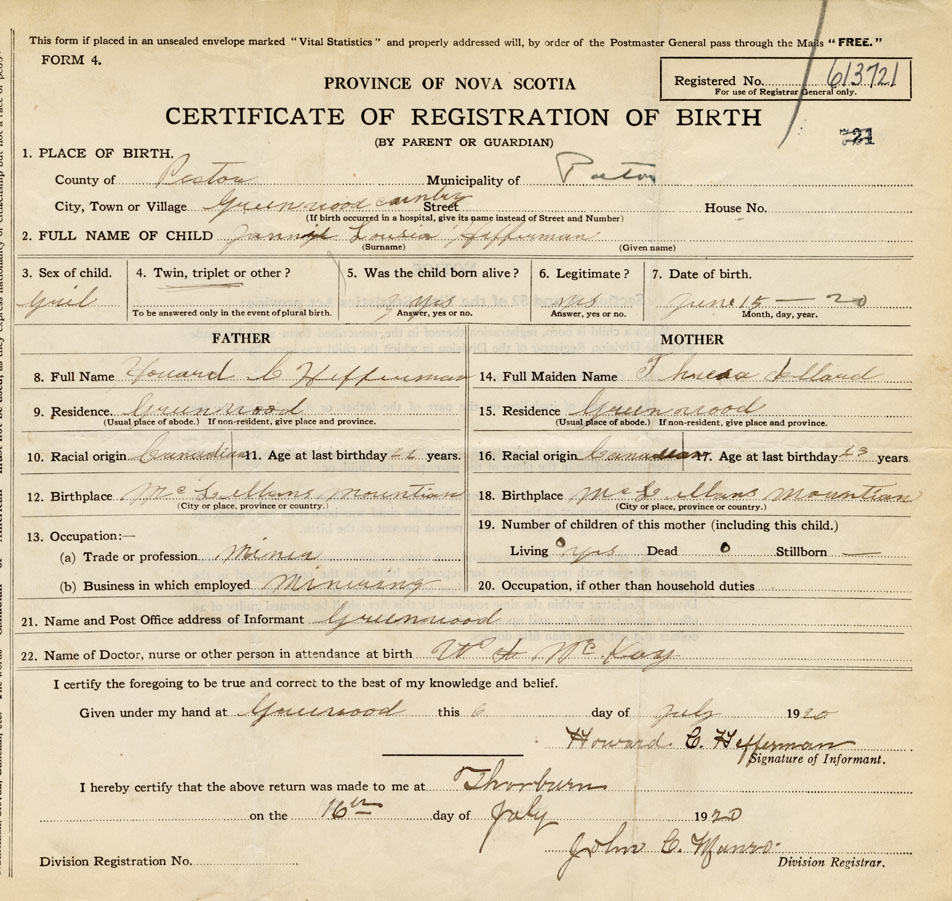 This form if placed in an unsealed envelope marked "Vital Statistics" and properly addressed will, by order of the Postmaster General pass through the Mails "FREE."
FORM 4.
Registered No. 613721
For use of Registrar General only.
PROVINCE OF NOVA SCOTIA
CERTIFICATE OF REGISTRATION OF BIRTH
(BY PARENT OR GUARDIAN)
1. PLACE OF BIRTH.
County of Pestou Municipality of
City, Town or Village Greenwood Street House No.
(If birth occurred in a hospital, give its name instead of Street and Number)
2. FULL NAME OF CHILD Lousia Hefferman
(Surname) (Given name)
3. Sex of child. 4. Twin, triplet or other? 5. Was the child born alive? 6. Legitimate? 7. Date of birth.
Gril yes yes June 15 — 20
To be answered only in the event of plural birth. Answer, yes or no. Answer, yes or no. Month, day, year.
FATHER MOTHER
8. Full Name Howard C Hefferman 14. Full Maiden Name
9. Residence. Greenwood 15. Residence Greenwood
(Usual place of abode.) If non-resident, give place and province. (Usual place of abode.) If non-resident, give place and province.
10. Racial origin Canadian 11. Age at last birthday years. 16. Racial origin Canadian 17. Age at last birthday 23 years.
12. Birthplace McLellans Mountian 18. Birthplace McLellans Mountian
(City or place, province or country.) (City or place, province or country.)
13. Occupation:— 19. Number of children of this mother (including this child.)
(a) Trade or profession Miner Living yes Dead 0 Stillborn —
(b) Business in which employed Minering 20. Occupation, if other than household duties
21. Name and Post Office address of Informant Greenwood
22. Name of Doctor, nurse or other person in attendance at birth W McKay
I certify the foregoing to be true and correct to the best of my knowledge and belief.
Given under my hand at Greenwood this 6 day of July 1920
Howard. C. Hefferman
Signature of Informant.
I hereby certify that the above return was made to me at Thorburn
on the 16th day of July 1920
John C. Munro.
Division Registration No. Division Registrar.